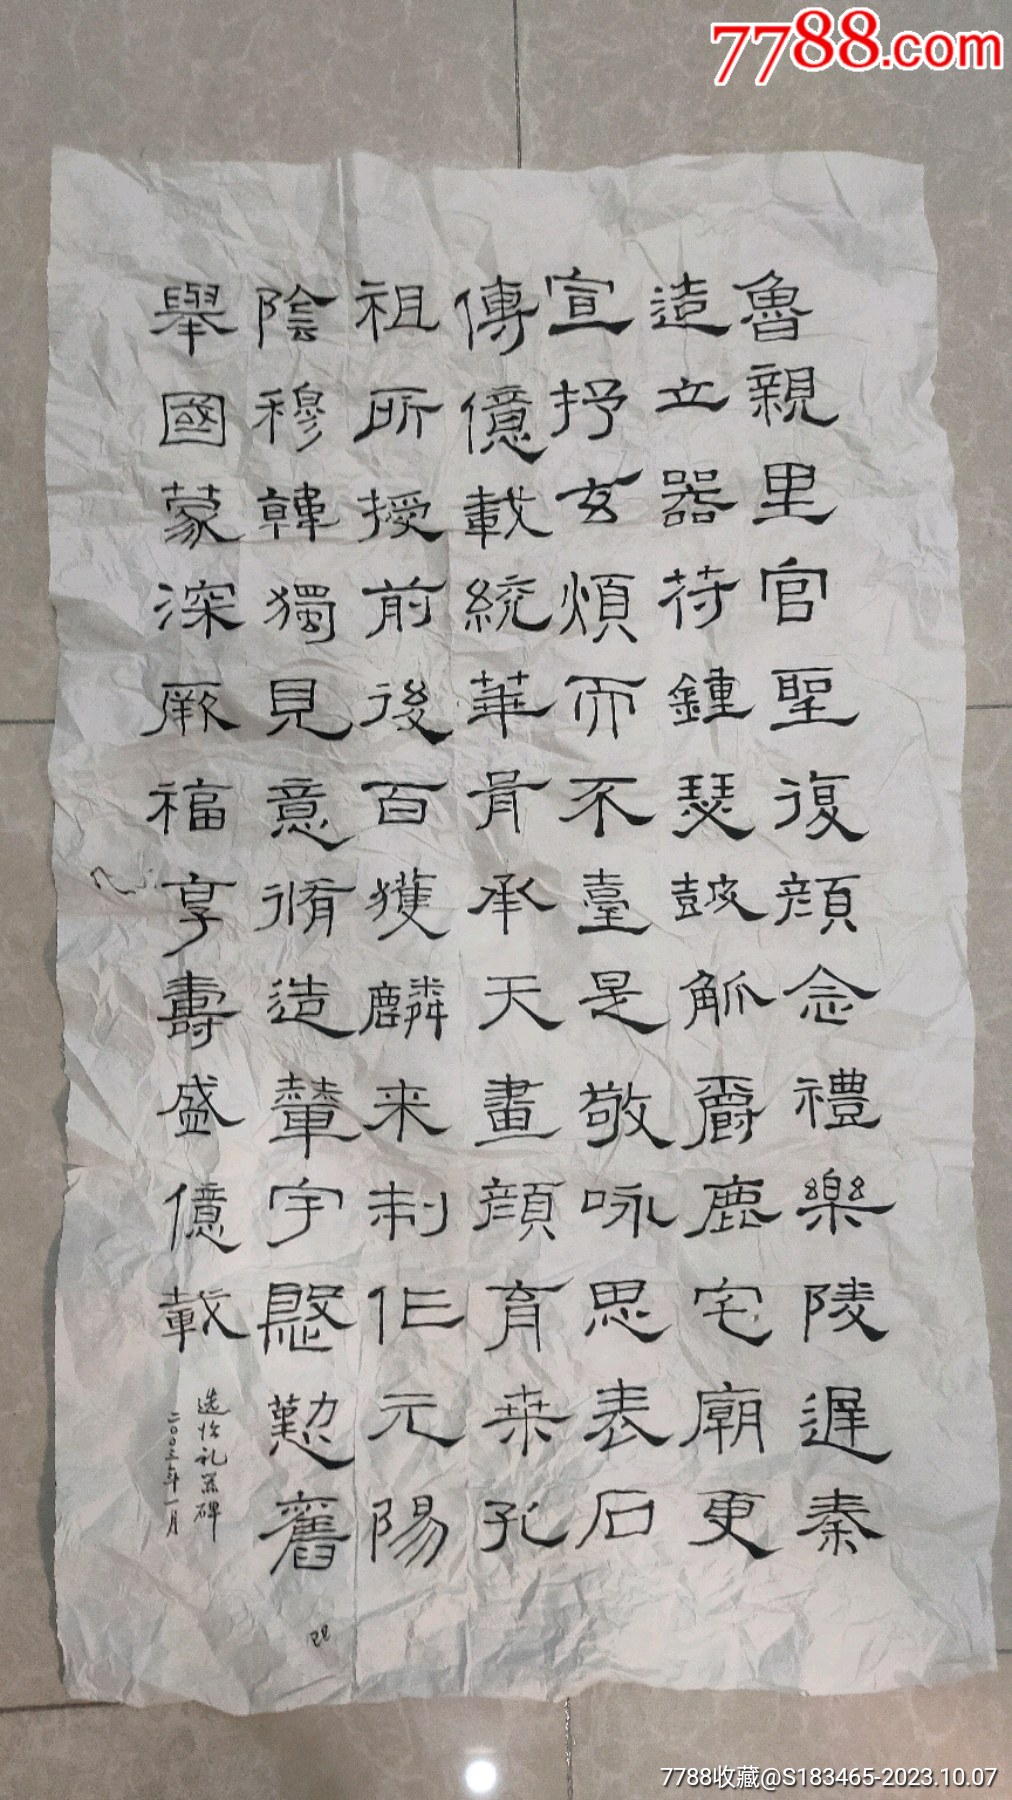 7788.com
魯親里官聖復顏念禮樂陵遲秦
造立器苻鍾瑟鼓觚爵鹿宅廟更
宣抒玄煩而不臺是敬咏思表石
傳億載統華胥承天畫顏育桒孔
祖所授前後百獲麟来制作元陽
陰穆韓獨見意脩造輦宇慇懃舊
舉國蒙深厥福享壽盛億載
选临礼器碑
二〇〇三年一月
7788收藏@S183465-2023.10.07